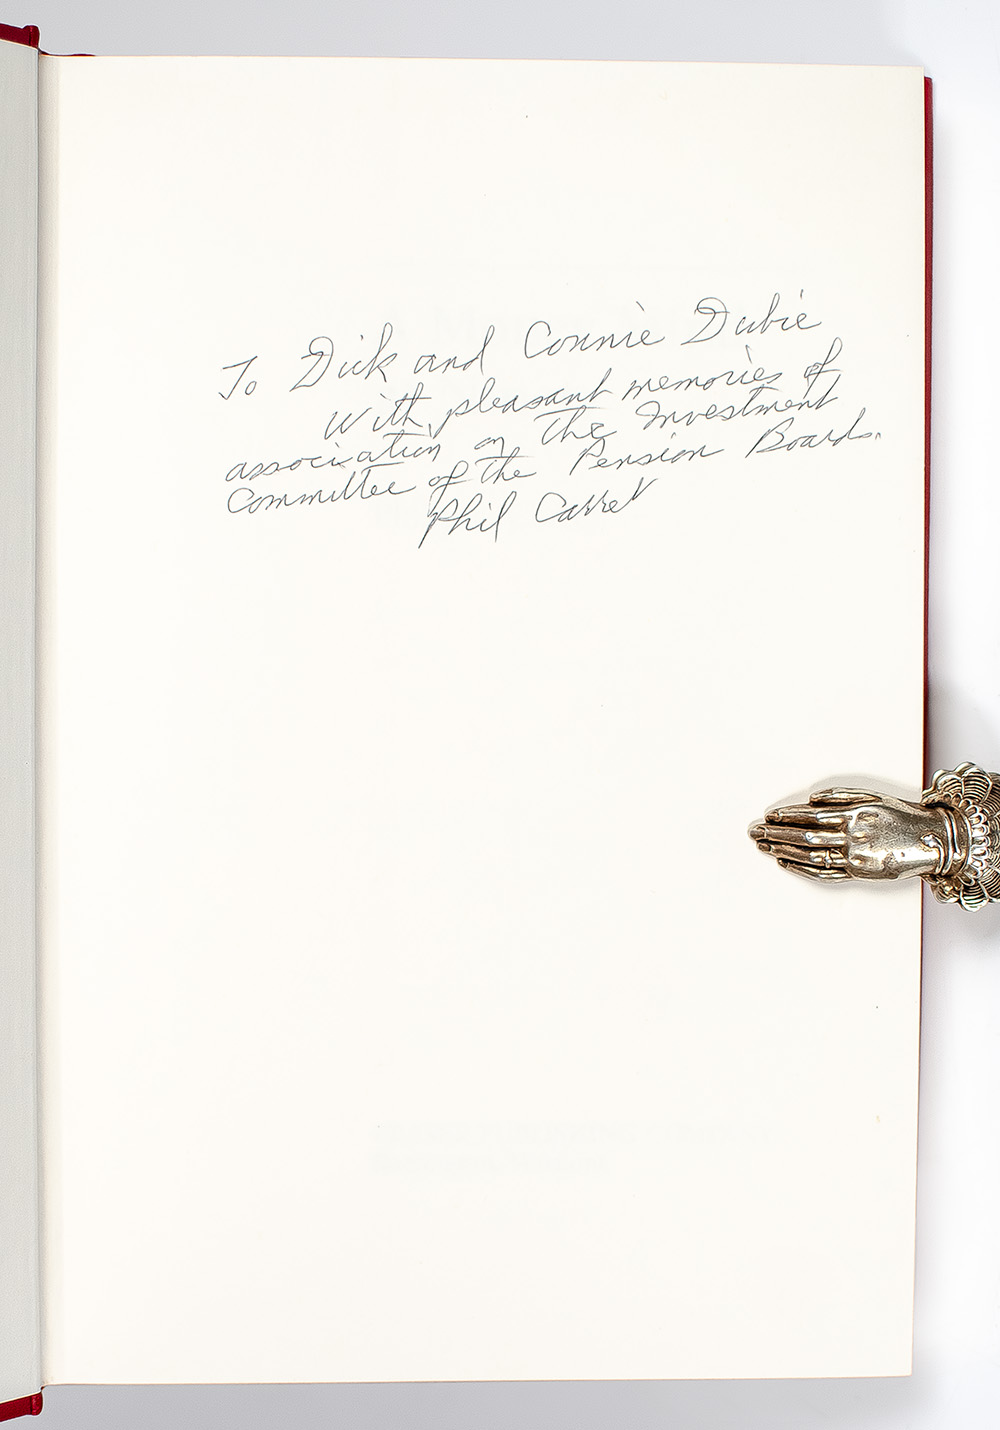 To Dick and Connie Dubie
With pleasant memories of
association on the Investment
Committee of the Pension Boards.
Phil Carret